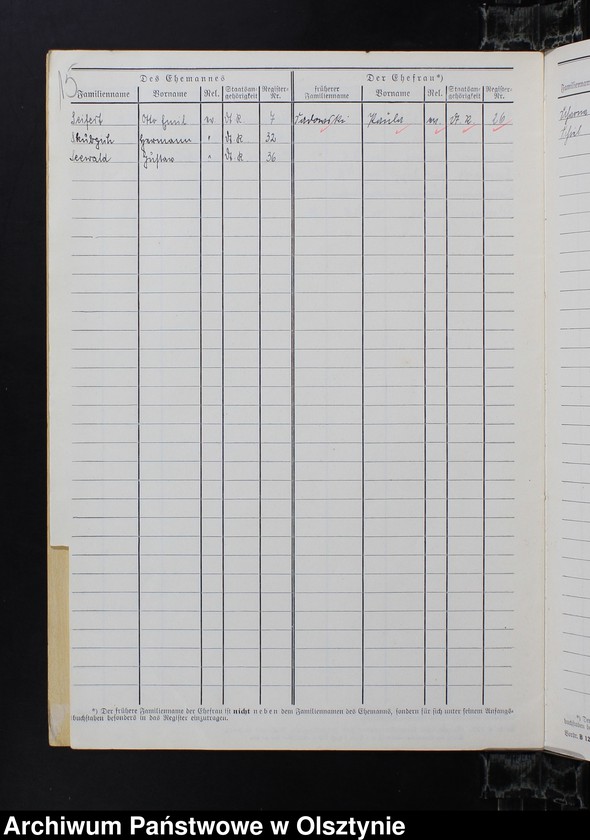 15
Des Ehemannes
Der Ehefrau*)
Familienname Vorname Rel. Staatsan-gehörigkeit Register-Nr. früherer Familienname Vorname Rel. Staatsan-gehörigkeit Register-Nr.
Seifert Otto Emil ev. Dt. R. 7 Sadowski Paula ev. Dt. R. 26
Hermann " Dt. R. 32
Seewald Gustav " Dt. R. 36
*) Der frühere Familienname der Ehefrau ist nicht neben dem Familiennamen des Ehemanns, sondern für sich unter seinem Anfangs-
buchstaben besonders in das Register einzutragen.
Archiwum Państwowe w Olsztynie